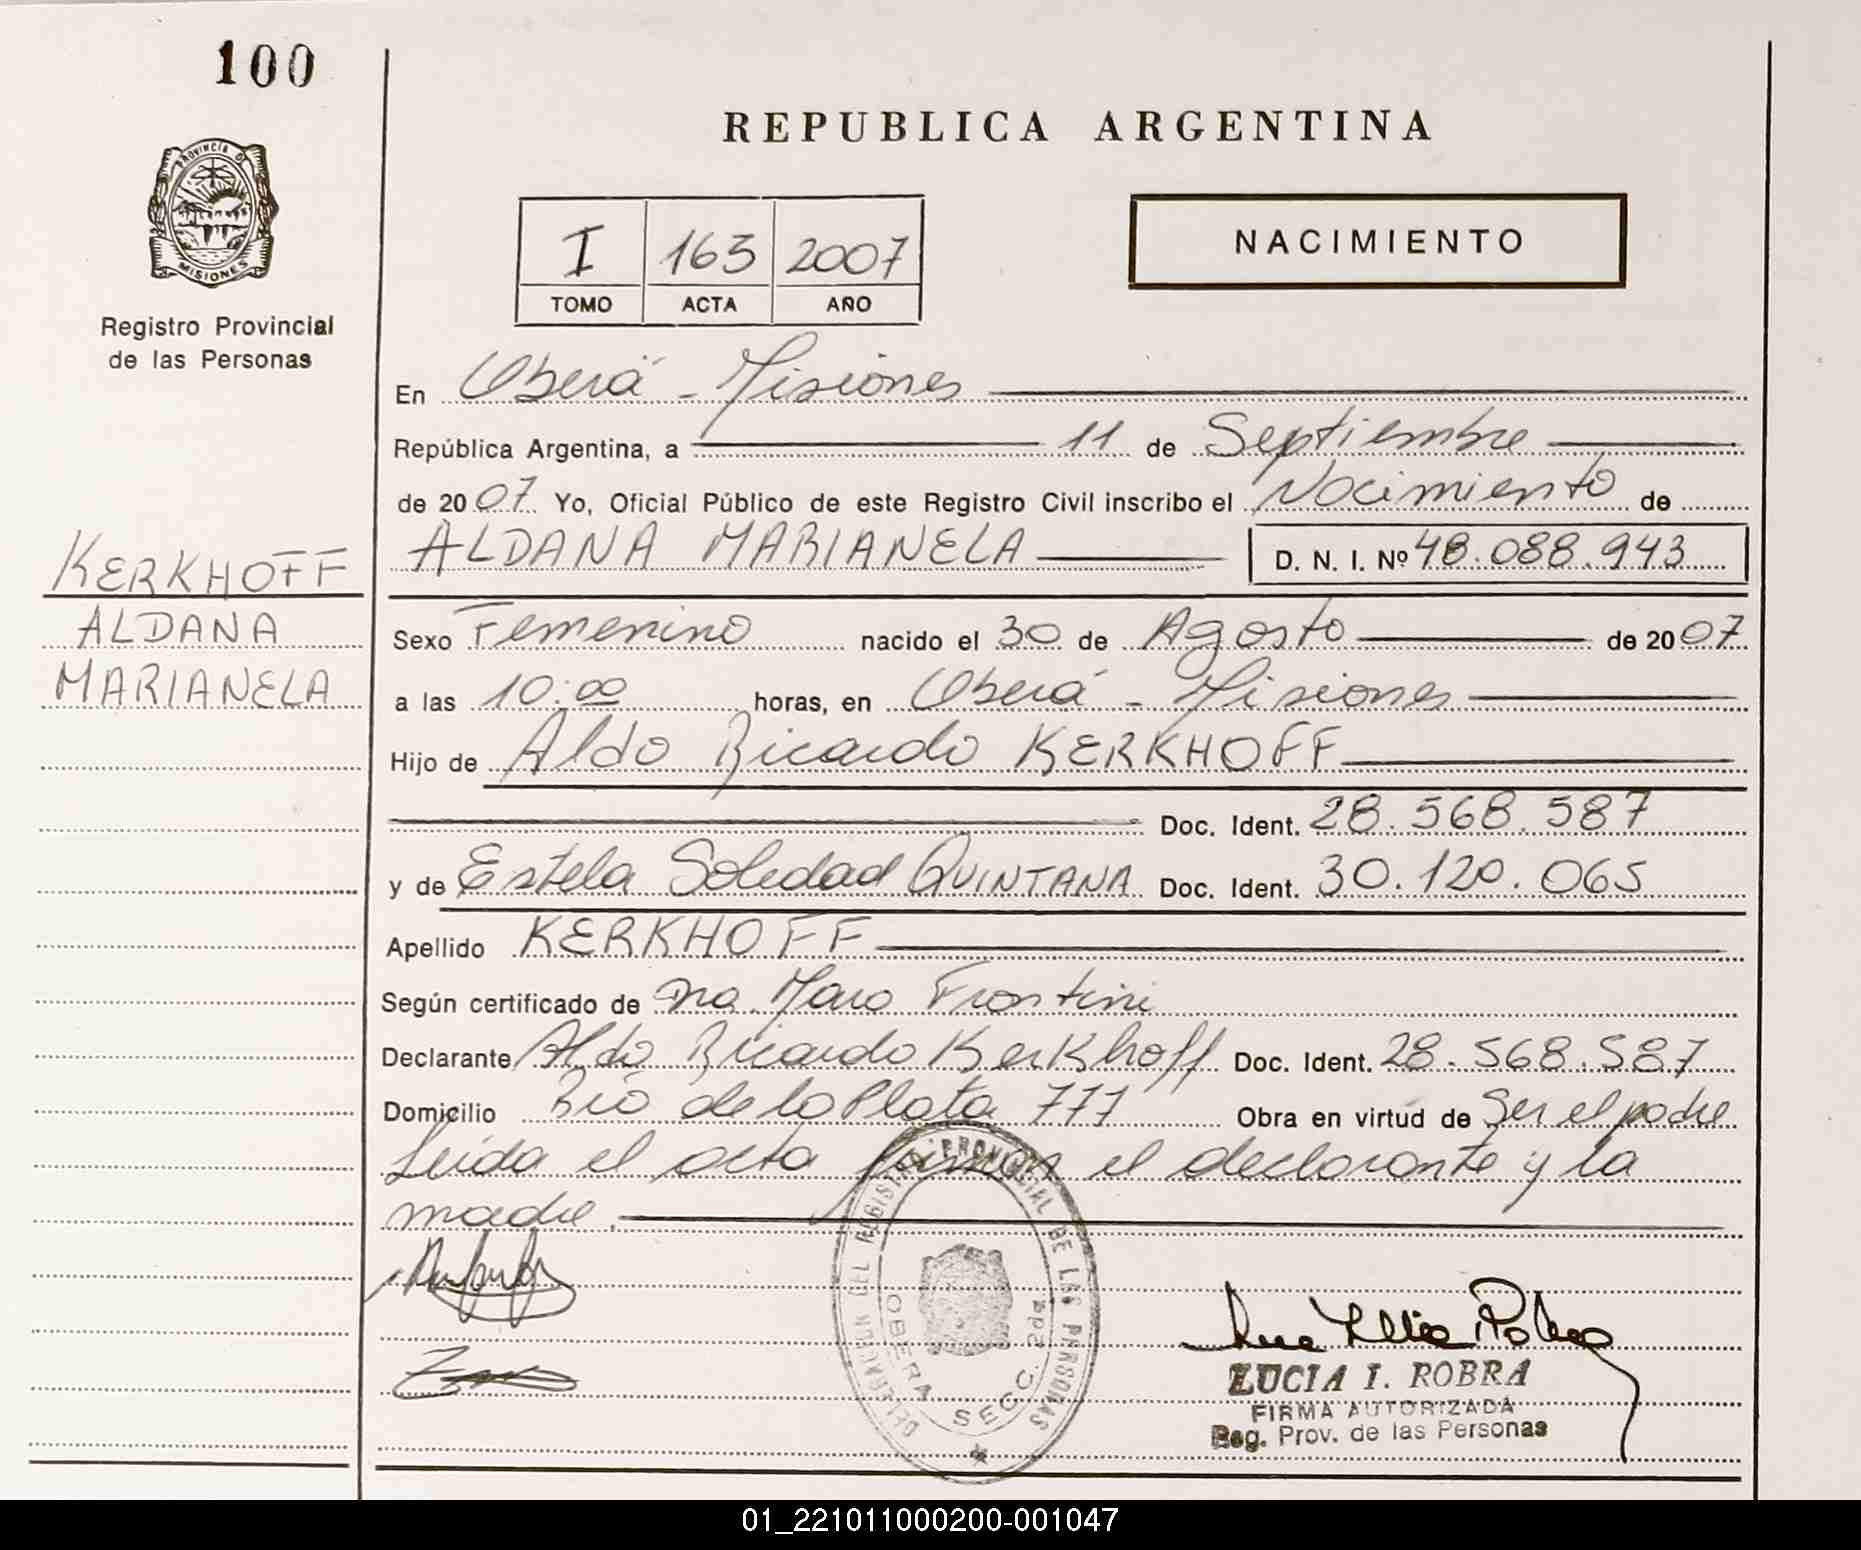 100
PROVINCIA DE
MISIONES
Registro Provincial
de las Personas
KERKHOFF
ALDANA
MARIANELA
REPUBLICA ARGENTINA
I 163 2007
TOMO ACTA AÑO
NACIMIENTO
En Oberá - Misiones
República Argentina, a 11 de Septiembre
de 2007 Yo, Oficial Público de este Registro Civil inscribo el Nacimiento de
ALDANA MARIANELA D. N. I. Nº 48.088.943
Sexo Femenino nacido el 30 de Agosto de 2007
a las 10:00 horas, en Oberá - Misiones
Hijo de Aldo Ricardo KERKHOFF
Doc. Ident. 28.568.587
y de Estela Soledad QUINTANA Doc. Ident. 30.120.065
Apellido KERKHOFF
Según certificado de Frontini
Declarante Aldo Ricardo Kerkhoff Doc. Ident. 28.568.587
Domicilio Rio de la Plata 777 Obra en virtud de Ser el padre
Leida el acta firman el declarante y la
madre.
DELEGACION DEL REGISTRO PROVINCIAL DE LAS PERSONAS
OBERA SECC. 2da
LUCIA I. ROBRA
FIRMA AUTORIZADA
Reg. Prov. de las Personas
01_221011000200-001047